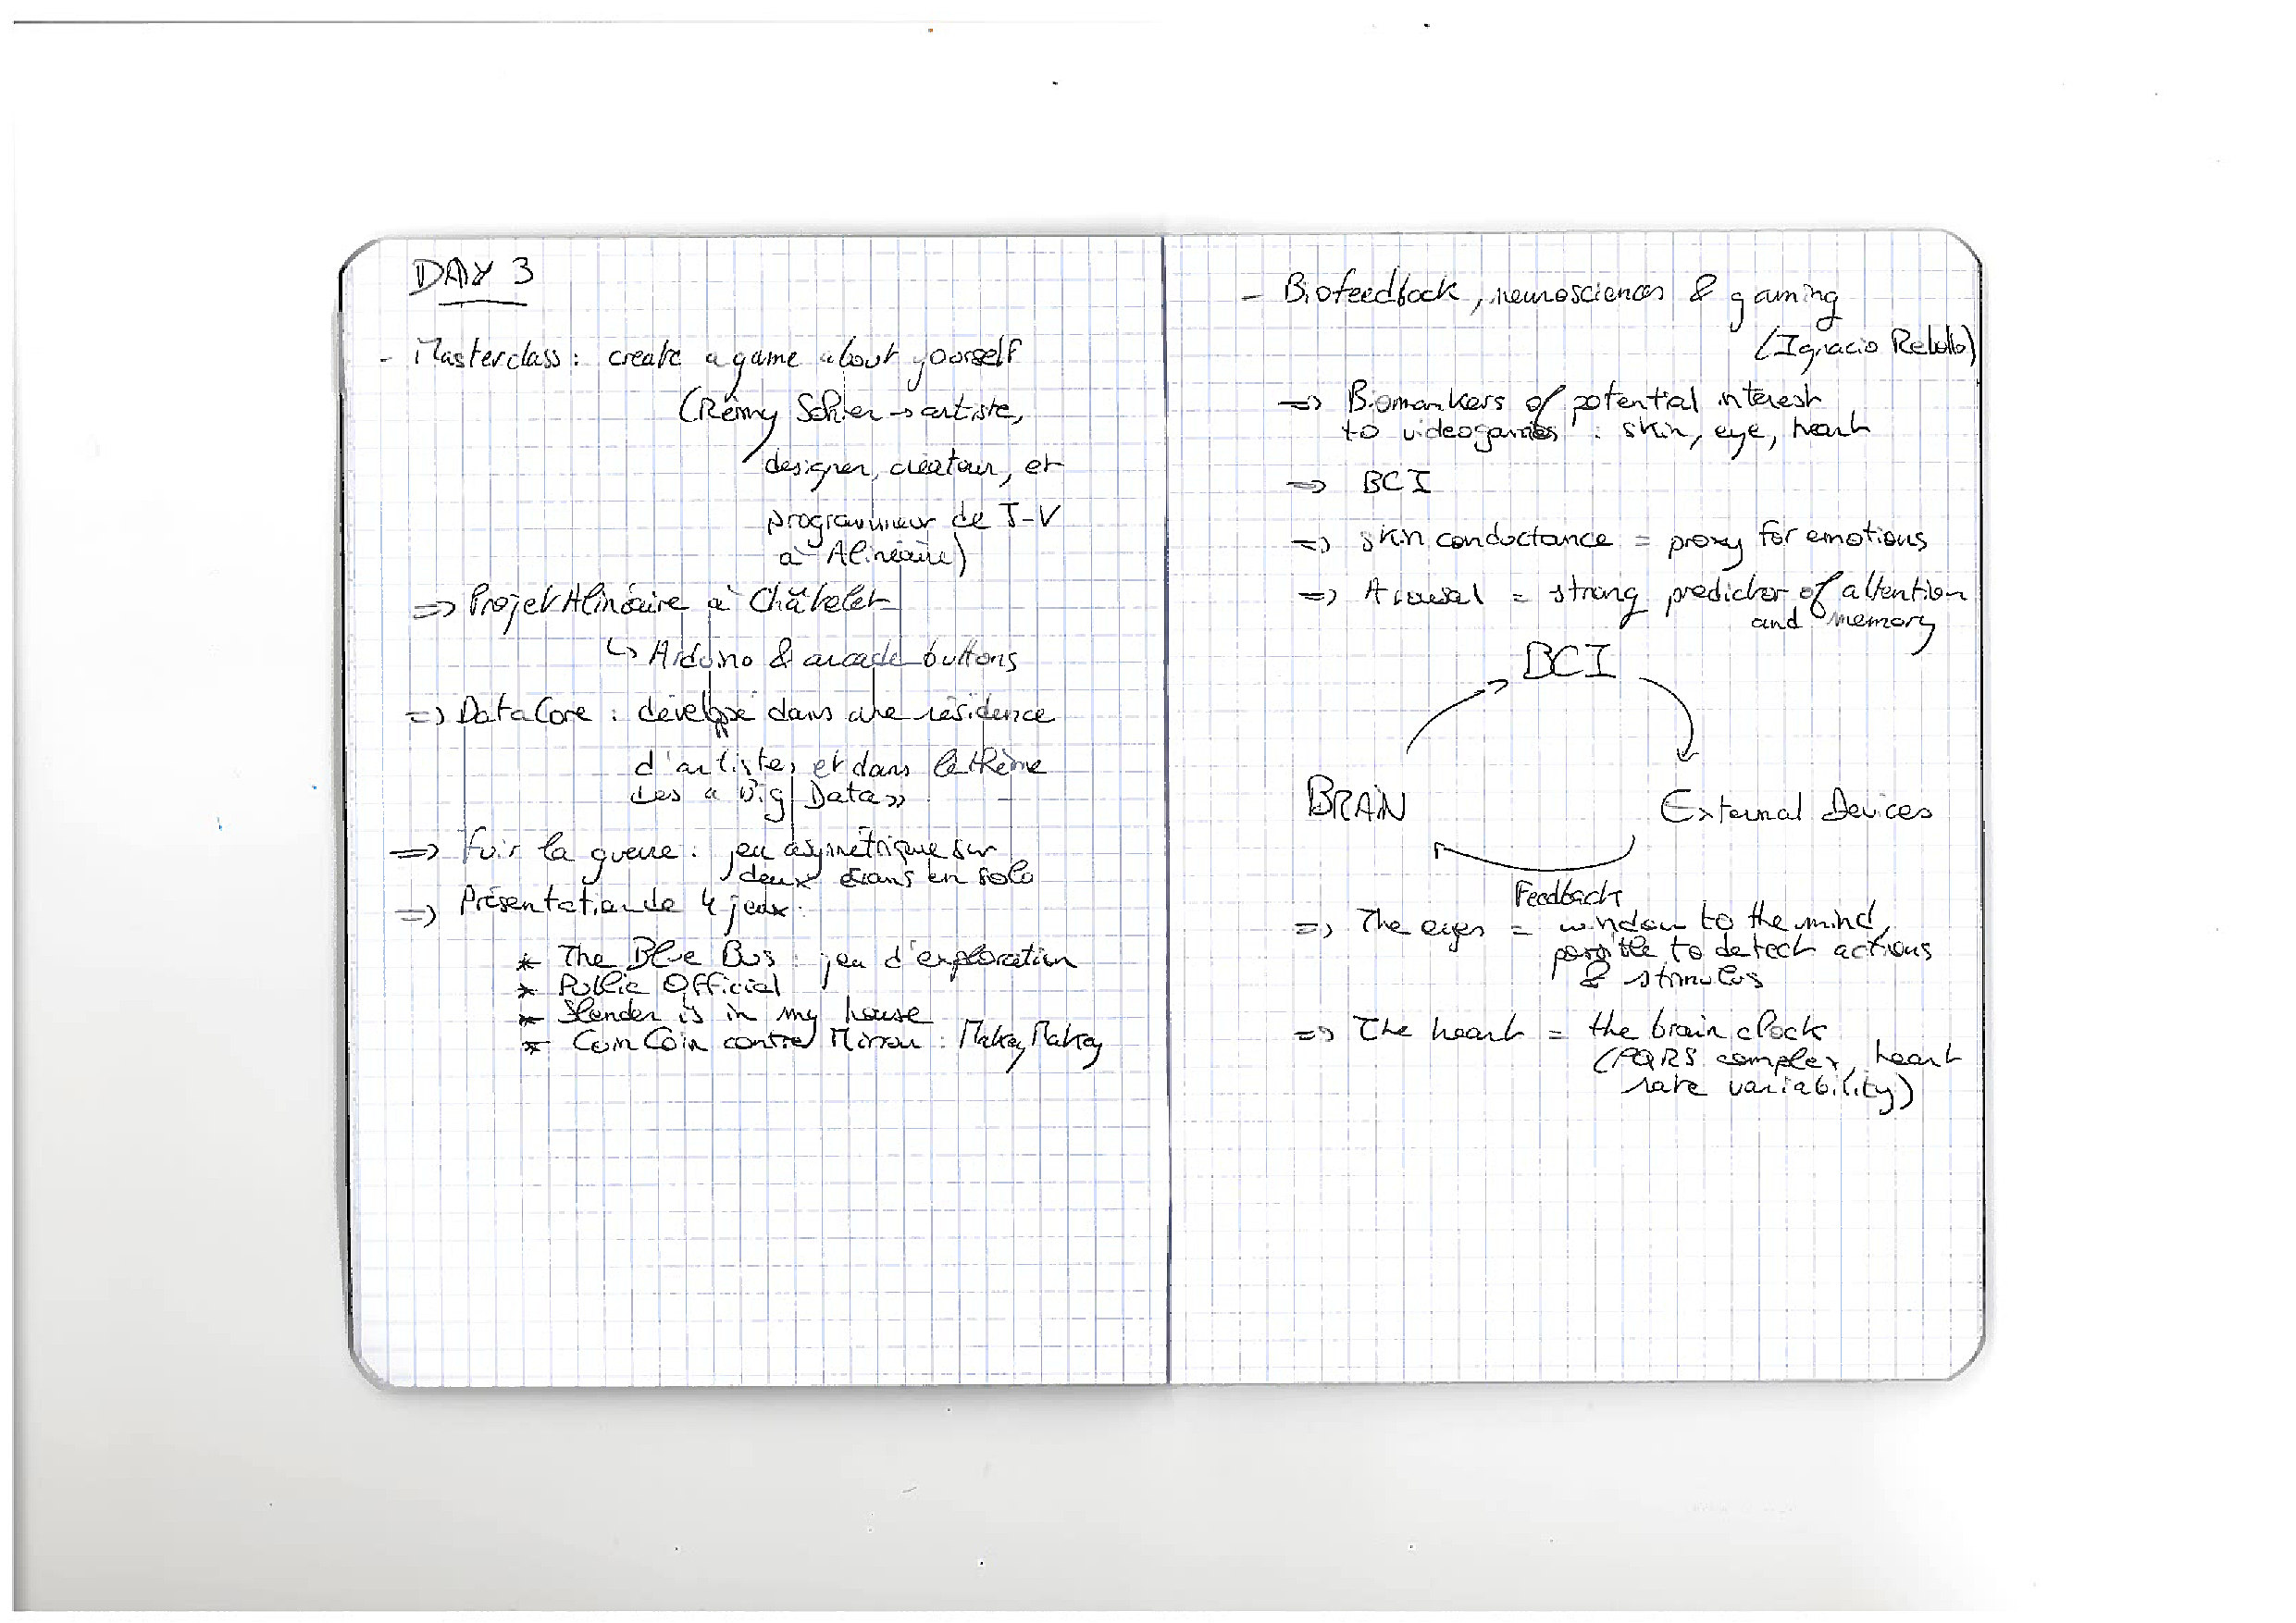 DAY 3
- Masterclass : create a game about yourself
(Rémy Sohier → artiste,
designer, créateur, et
programmeur de J-V
à Alinéaire)
=> Projet Alinéaire à Châtelet
↳ Arduino & arcade buttons
=> DataCore : développé dans une résidence
d'artistes et dans le thème
des « Big Data »
=> Fuir la guerre : jeu asymétrique sur
deux écrans en solo
=> Présentation de 4 jeux :
* The Blue Bus : jeu d'exploration
* Public Official
* Slender is in my house
* CoinCoin contre Mirroir : MakeyMakey
- Biofeedback, neurosciences & gaming
(Ignacio Rebollo)
=> Biomarkers of potential interest
to videogames : skin, eye, heart
=> BCI
=> skin conductance = proxy for emotions
=> Arousal = strong predictor of attention
and memory
BCI
BRAIN
External Devices
Feedback
=> The eyes = window to the mind,
possible to detect actions
& stimulus
=> The heart = the brain clock
(PQRS complex, heart
rate variability)